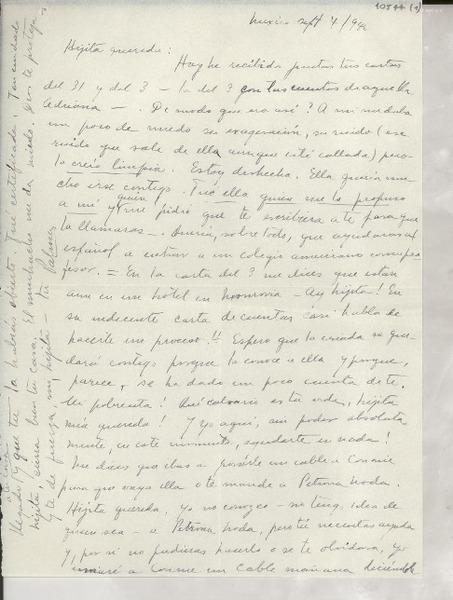 10544 (1)
Mexico Sept 4/946
Hijita querida:
Hoy he recibido juntas tus cartas
del 31 y del 3 — la del 3 con las cuentas de aquella
Adriana —. De modo que era así? A mí me daba
un poco de miedo su exageración, su ruido (ese
ruido que sale de ella aunque esté callada) pero
la creía limpia. Estoy deshecha. Ella quería mu-
cho irse contigo. Fué ella quien me lo propuso
a mí y quien me pidió que te escribiera a ti para que
la llamaras. Quería, sobre todo, que ayudaras al
español a entrar a un colegio americano como pro-
fesor. = En la carta del 3 me dices que estan
aun en ese hotel en Monrovia — Ay hijita! En
su indecente carta de cuentas casi habla de
hacerte un proceso!! Espero que la criada se que-
dará contigo porque la conoce a ella y porque,
parece, se ha dado un poco cuenta de ti.
Mi pobrecita! Qué calvario es tu vida, hijita
mía querida! Y yo aquí, sin poder absoluta-
mente, en este momento, ayudarte en nada!
Me dices que ibas a ponerle un cable a Connie
para que vaya ella o te mande a Petrona
Hijita querida, yo no conozco — ni tengo idea de
quien sea — a Petrona pero tú necesitas ayuda
y, por si no pudieras hacerlo o se te olvidara, yo
a Connie un cable mañana diciéndole
llegado? y que tú la habías abierto. Fué certificada. Ten cuidado
hijita, cierra bien tu casa. El me da miedo. Dios te proteja
y te de fuerza, mi hijita — tu Palma